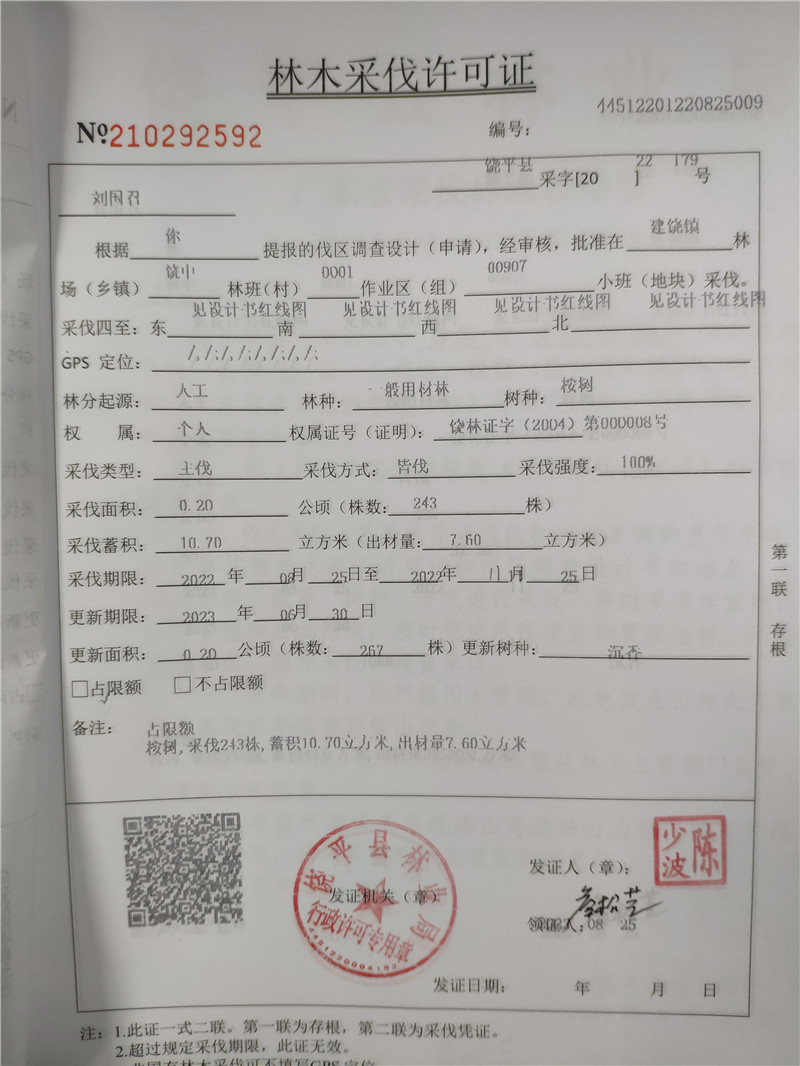 林木采伐许可证
№210292592
编号：
44512201220825009
饶平县采字[20 22 ] 179 号
刘国召
根据 你 提报的伐区调查设计（申请），经审核，批准在 建饶镇 林
场（乡镇） 饶中 林班（村） 0001 作业区（组） 00907 小班（地块）采伐。
采伐四至：东 见设计书红线图 南 见设计书红线图 西 见设计书红线图 北 见设计书红线图
GPS 定位： /,/;/,/;/,/;/,/;
林分起源： 人工 林种： 一般用材林 树种： 桉树
权 属： 个人 权属证号（证明）： 饶林证字（2004）第000008号
采伐类型： 主伐 采伐方式： 皆伐 采伐强度： 100%
采伐面积： 0.20 公顷（株数： 243 株）
采伐蓄积： 10.70 立方米（出材量： 7.60 立方米）
采伐期限： 2022 年 08月 25日至 2022年 11月 25日
更新期限： 2023 年 06月 30 日
更新面积： 0.20 公顷（株数： 267 株）更新树种： 沉香
□占限额 □不占限额
备注： 占限额
桉树,采伐243株,蓄积10.70立方米,出材量7.60立方米
第一联 存根
饶平县林业局
行政许可专用章
4451220004182
发证机关（章）
发证人（章）：
陈少波
领证人： 08 25
发证日期： 年 月 日
注：1.此证一式二联。第一联为存根，第二联为采伐凭证。
2.超过规定采伐期限，此证无效。